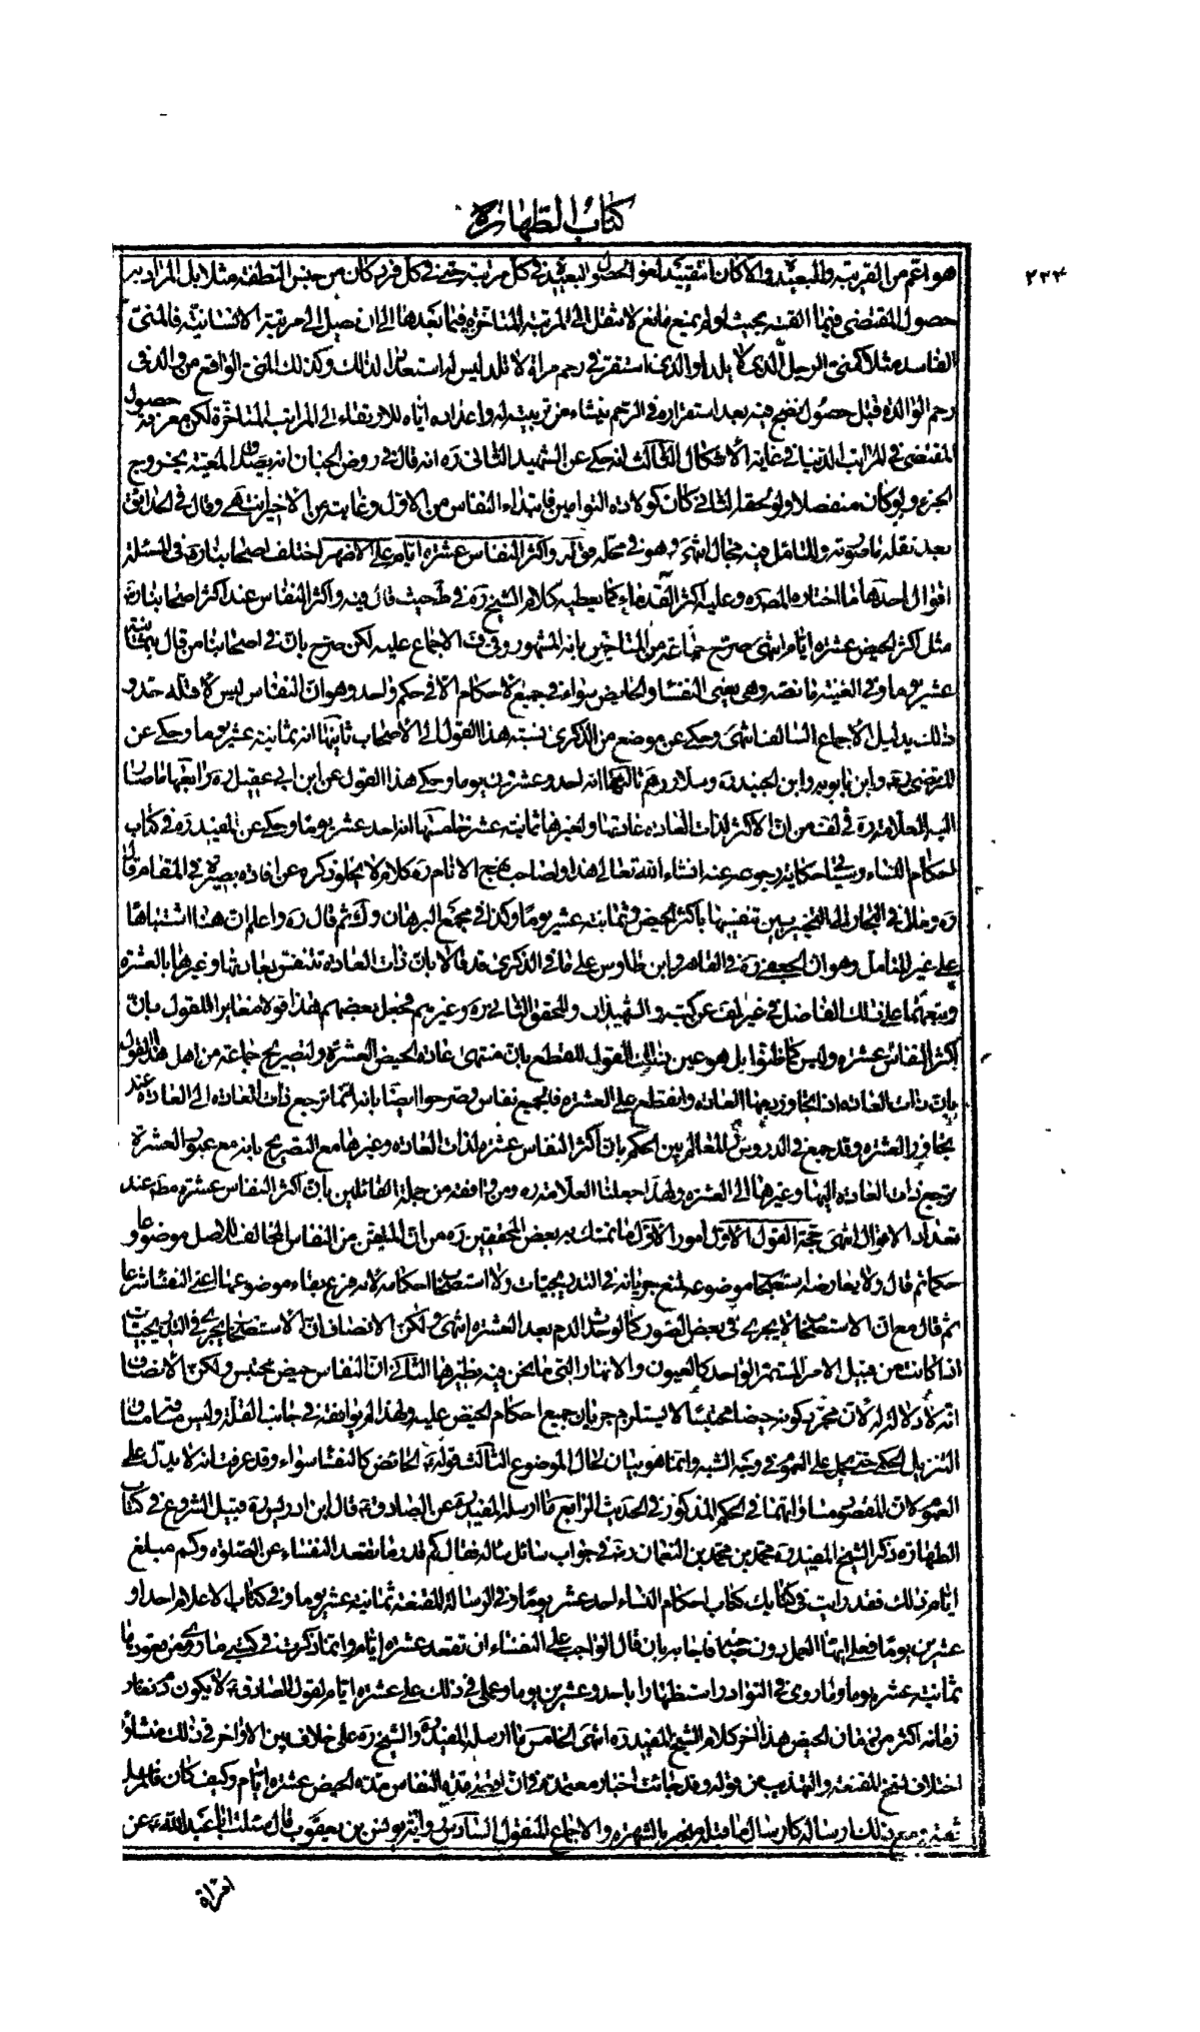 كتاب الطهارة
٢٣٤
هو اعم من القريبة والبعيدة والا كان التقييد لغوا لحصول البعيدة في كل مرتبة حتى في كل فرد كان من جنس النطفة مثلا بل المراد به
حصول المقتضى فيما القته بحيث لو لم يمنع مانع لانتقل الى المرتبة المتاخرة فيما بعدها الى ان يصل الى مرتبة الانسانية فالمنى
الفاسد مثلا كمنى الرجل الذي لا يلد او الذي استقر في رحم مراة لا تلد ليس له استعداد لذلك وكذلك المنى الواقع من والد في
رحم الوالدة قبل حصول نضج فيه بعد استقراره في الرحم ينشاء عن تربيته له واعداده اياه للارتقاء الى المراتب المتاخرة لكن معرفة حصول
المقتضى في المراتب الدنيا في غاية الاشكال الثالث انه حكى عن الشهيد الثاني ره انه قال في روض الجنان انه يصدق المعية بخروج
الجزء ولو كان منفصلا ولو لحقه الثاني كان كولادة التوامين فابتداء النفاس من الاول وغايته من الاخير انتهى وقال في الحدائق
بعد نقله ما صورته وللتامل فيه مجال انتهى وهو في محله قوله واكثر النفاس عشرة ايام على الاظهر اختلف اصحابنا ره في المسئلة
اقوال احدها ما اختاره المص ره وعليه اكثر القدماء كما يعطيه كلام الشيخ ره في ط حيث قال فيه واكثر النفاس عند اكثر اصحابنا ره
مثل اكثر الحيض عشرة ايام انتهى صرح جماعة من المتاخرين بانه المشهور وفي ف الاجماع عليه لكن صرح بان في اصحابنا من قال بثمانية
عشر يوما وفي الغنية ما نصه وهي يعني النفساء والحائض سواء في جميع الاحكام الا في حكم واحد وهو ان النفاس ليس لاقله حد و
ذلك بدليل الاجماع السالف انتهى وحكى عن موضع من الذكرى نسبة هذا القول الى الاصحاب ثانيها انه ثمانية عشر يوما وحكى عن
المرتضى ره وابن بابويه وابن الجنيد ره وسلار رهم ثالثها انه احد وعشرون يوما وحكى هذا القول عن ابن ابي عقيل ره رابعها ما صار
اليه العلامة ره في لف من ان الاكثر لذات العادة عادتها ولغيرها ثمانية عشر خامسها انه احد عشر يوما وحكى عن المفيد ره في كتاب
احكام النساء وسيأتي حكاية رجوعه عنه انشاء الله تعالى هذا ولصاحب منهج الانام ره كلام لا يخلو ذكره عن افادة بصيرة في المقام قال
ره ومال في البحار الى التخيير بين تنفسها باكثر الحيض وثمانية عشر يوما وكذا في مجمع البرهان وك ثم قال ره واعلم ان هنا اشتباها
على غير المتامل وهو ان الجعفى ره في الفاخر وابن طاوس على ما في الذكرى قد قالا بان ذات العادة تتنفس بعادتها وغيرها بالعشرة
وتبعهما على ذلك الفاضل في غير لف عن كتبه والشهيدان والمحقق الثاني ره وغيرهم فجعل بعضهم هذا قولا مغايرا للقول بان
اكثر النفاس عشرة وليس كما ظنوا بل هو عين ذلك القول للقطع بان منتهى عادة الحيض العشرة ولتصريح جماعة من اهل هذا القول
بان ذات العادة اذا تجاوز دمها العادة وانقطع على العشرة فالجميع نفاس وصرحوا ايضا بانه انما ترجع ذات العادة الى العادة عند
تجاوز العشرة وقد جمع في الدروس والمعالم بين الحكم بان اكثر النفاس عشرة لذات العادة وغيرها مع التصريح بانه مع عبور العشرة
ترجع ذات العادة اليها وغيرها الى العشرة ولهذا جعلنا العلامة ره ومن وافقه من جملة القائلين بان اكثر النفاس عشرة مطم عند
تعداد الاقوال انتهى حجة القول الاول امور الاول ما تمسك به بعض المحققين ره من ان المتيقن من النفاس المخالف للاصل موضوعا و
حكما ثم قال ولا يعارضه استصحاب موضوعه لمنع جريانه في التدريجيات ولا استصحاب احكامه لانه فرع بقاء موضوعها اعنى النفساء شرعا
ثم قال مع ان الاستصحاب لا يجرى في بعض الصور كما لو حدث الدم بعد العشرة انتهى ولكن الانصاف ان الاستصحاب يجرى في التدريجيات
اذا كانت من قبيل الامر المستمر الواحد كالعيون والانهار التي ما نحن فيه نظيرها الثاني ان النفاس حيض محتبس ولكن الانصاف
انه لا دلالة له لان مجرد كونه حيضا محتبسا لا يستلزم جريان جميع احكام الحيض عليه ولهذا لم يوافقه في جانب القلة وليس مسوقا مساق
التنزيل الحكمي حتى يحمل على العموم في وجه الشبه وانما هو بيان لحال الموضوع الثالث قوله ع الحائض كالنفساء سواء وقد عرفت انه لا يدل على
العموم لان المقصود مساواتهما في الحكم المذكور في الحديث الرابع ما ارسله المفيد ره عن الصادق ع قال ابن ادريس ره قبيل الشروع في كتاب
الطهارة ذكر الشيخ المفيد ره محمد بن محمد بن النعمان رض في جواب سائل سأله فقال كم قدر ما تقعد النفساء عن الصلوة وكم مبلغ
ايام ذلك فقد رايت في كتابك كتاب احكام النساء احد عشر يوما وفي الرسالة المقنعة ثمانية عشر يوما وفي كتاب الاعلام احدا و
عشرين يوما فعلى ايها العمل دون صاحبه فاجابه بان قال الواجب على النفساء ان تقعد عشرة ايام وانما ذكرت في كتبى ما روى من قعودها
ثمانية عشر يوما وما روى في النوادر استظهارا باحد وعشرين يوما وعملى في ذلك على عشرة ايام لقول الصادق ع لا يكون دم نفاس
زمانه اكثر من زمان الحيض هذا اخر كلام الشيخ المفيد ره انتهى الخامس ما ارسله المفيد ره والشيخ ره على خلاف بين الاواخر في ذلك منشاؤه
اختلاف نسخ المقنعة والتهذيب من قوله وقد جائت اخبار معتمدة في ان اقصى مدة النفاس مدة الحيض عشرة ايام وكيف كان فالمرسل
ثقة ومع ذلك ارساله كارسال ما قبله منجبر بالشهرة والاجماع المنقول السادس رواية يونس بن يعقوب قال سئلت ابا عبد الله ع عن
امراة